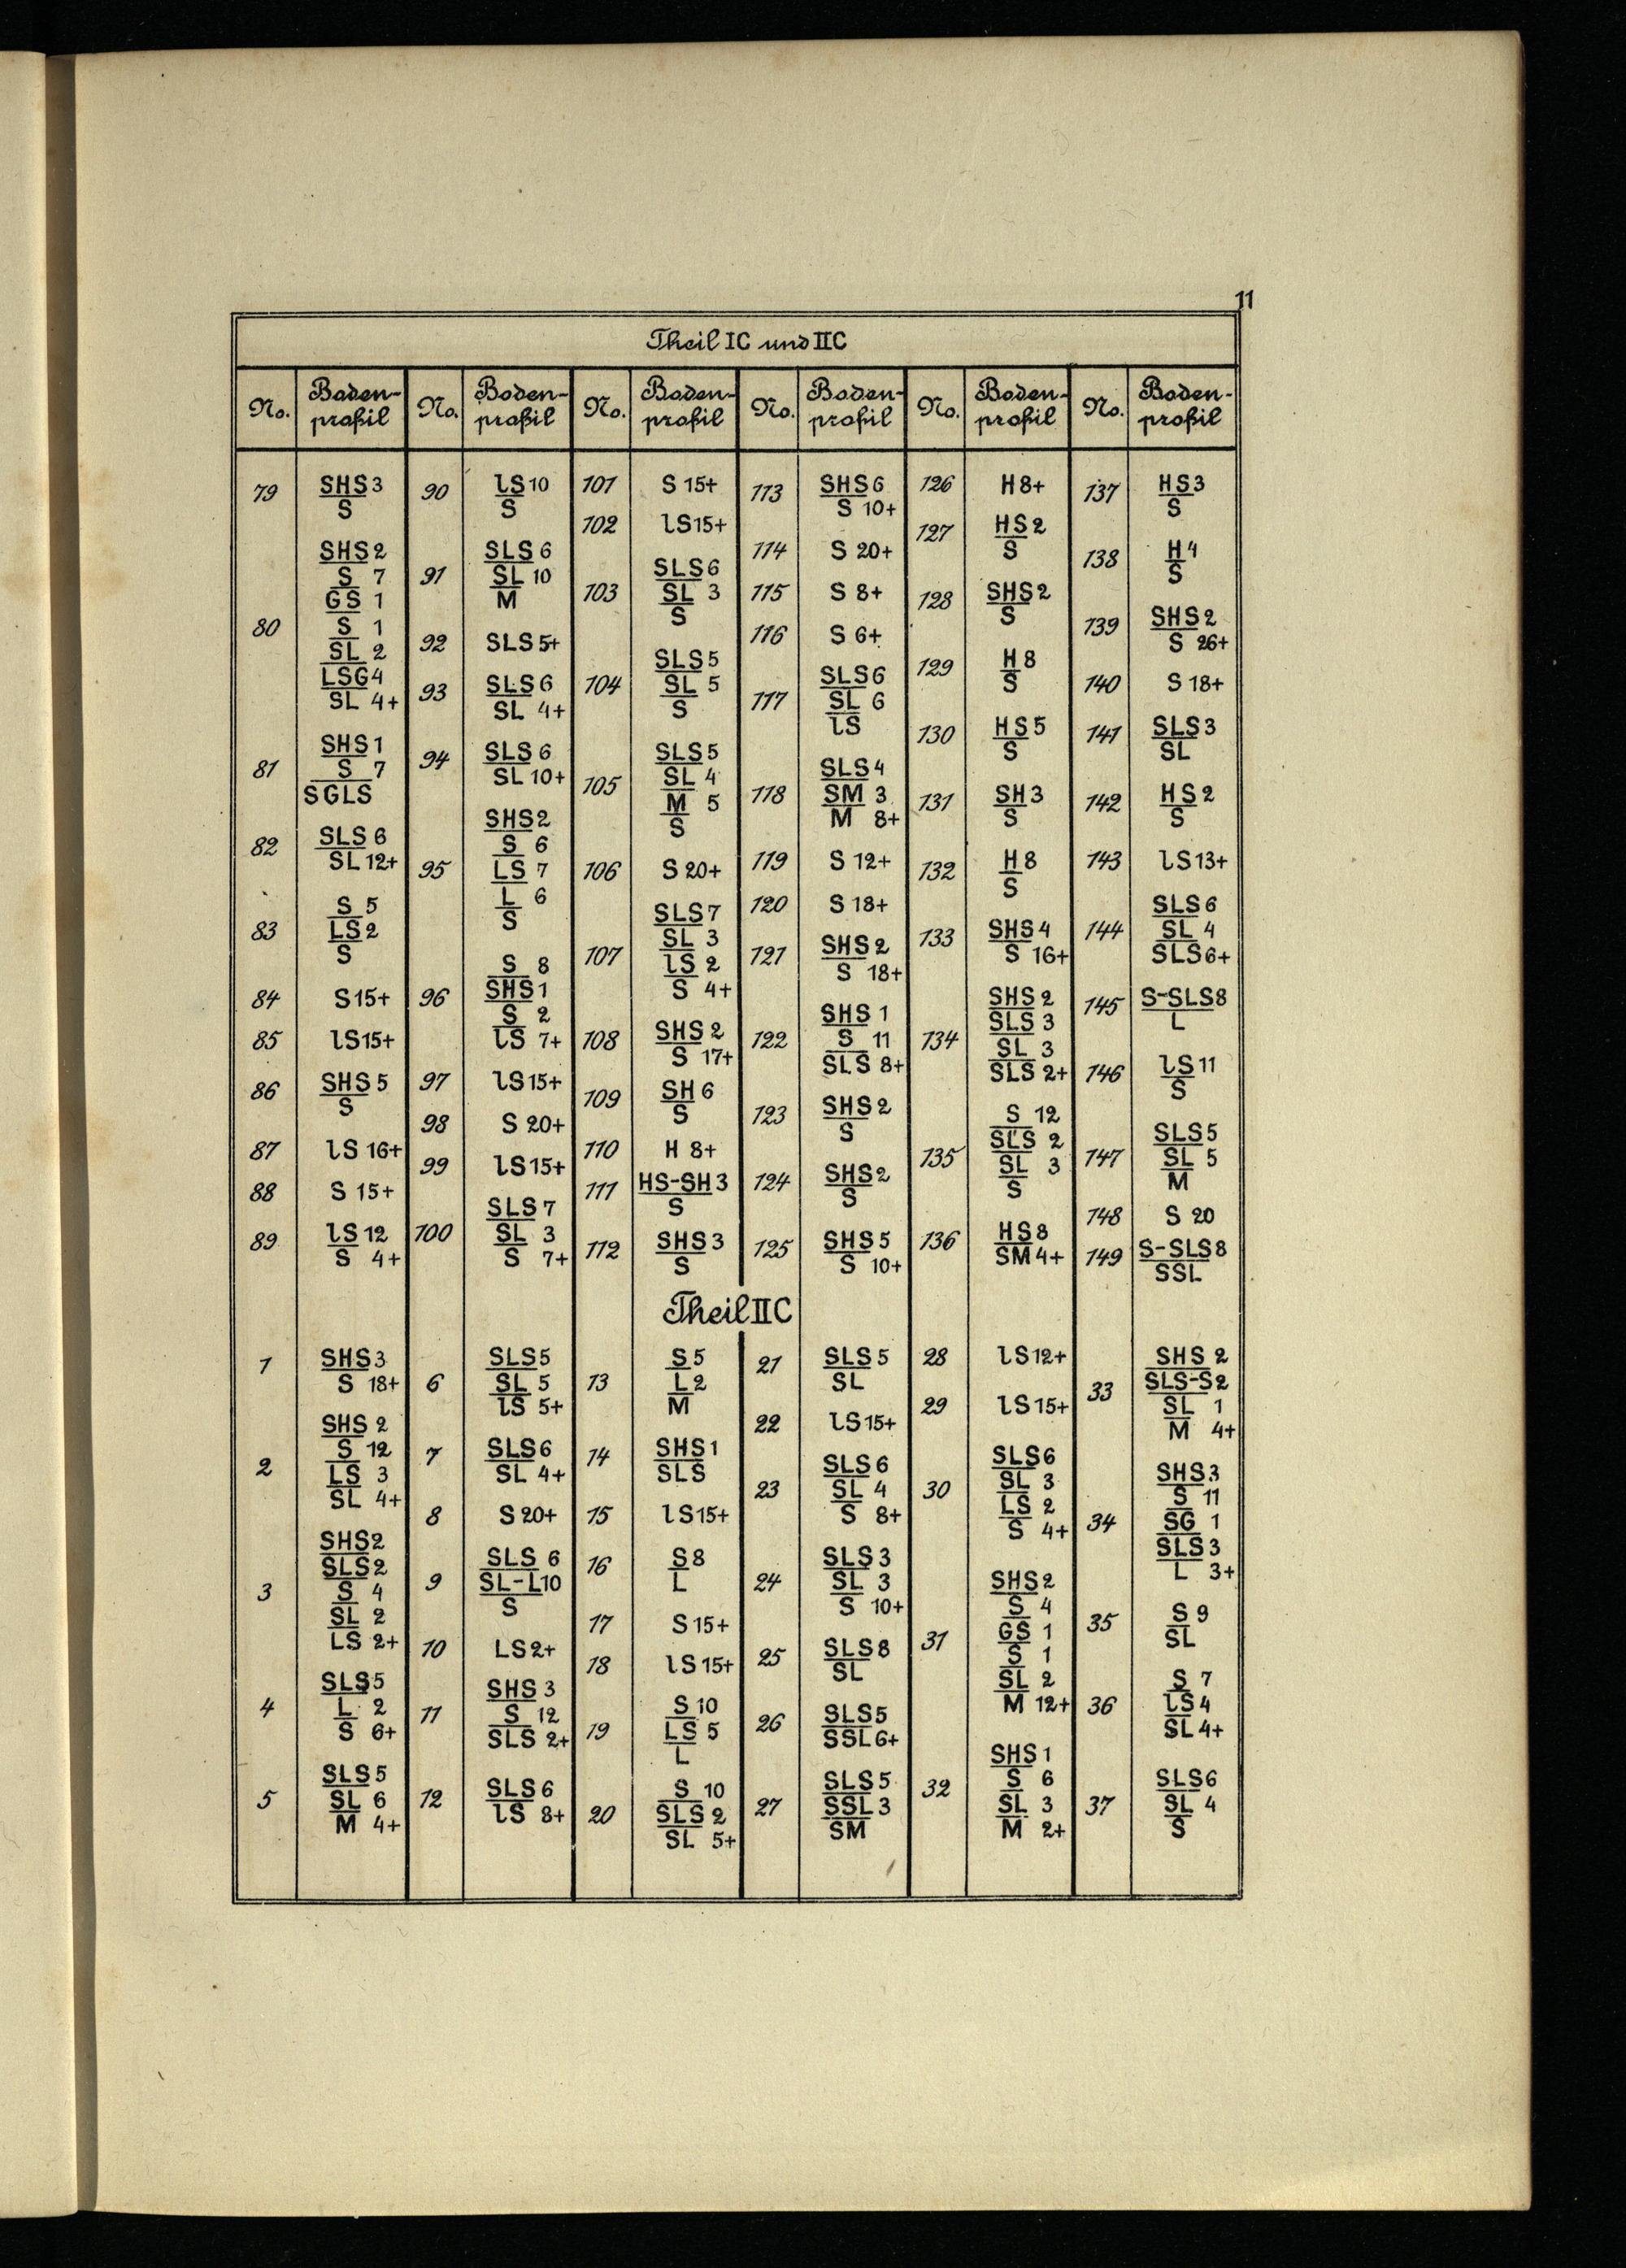 11
Theil IC und IIC
No. Boden-profil No. Boden-profil No. Boden-profil No. Boden-profil No. Boden-profil No. Boden-profil
79
SHS 3
S
80
SHS 2
S 7
GS 1
S 1
SL 2
LSG 4
SL 4+
81
SHS 1
S 7
SGLS
82
SLS 6
SL 12+
83
S 5
LS 2
S
84 S 15+
85 lS 15+
86
SHS 5
S
87 lS 16+
88 S 15+
89
lS 12
S 4+
90
lS 10
S
91
SLS 6
SL 10
M
92 SLS 5+
93
SLS 6
SL 4+
94
SLS 6
SL 10+
95
SHS 2
S 6
LS 7
L 6
S
96
S 8
SHS 1
S 2
lS 7+
97 lS 15+
98 S 20+
99 lS 15+
100
SLS 7
SL 3
S 7+
101 S 15+
102 lS 15+
103
SLS 6
SL 3
S
104
SLS 5
SL 5
S
105
SLS 5
SL 4
M 5
S
106 S 20+
107
SLS 7
SL 3
lS 2
S 4+
108
SHS 2
S 17+
109
SH 6
S
110 H 8+
111
HS-SH 3
S
112
SHS 3
S
113
SHS 6
S 10+
114 S 20+
115 S 8+
116 S 6+
117
SLS 6
SL 6
lS
118
SLS 4
SM 3
M 8+
119 S 12+
120 S 18+
121
SHS 2
S 18+
122
SHS 1
S 11
SLS 8+
123
SHS 2
S
124
SHS 2
S
125
SHS 5
S 10+
126 H 8+
127
HS 2
S
128
SHS 2
S
129
H 8
S
130
HS 5
S
131
SH 3
S
132
H 8
S
133
SHS 4
S 16+
134
SHS 2
SLS 3
SL 3
SLS 2+
135
S 12
SLS 2
SL 3
S
136
HS 8
SM 4+
137
HS 3
S
138
H 4
S
139
SHS 2
S 26+
140 S 18+
141
SLS 3
SL
142
HS 2
S
143 lS 13+
144
SLS 6
SL 4
SLS 6+
145
S-SLS 8
L
146
lS 11
S
147
SLS 5
SL 5
M
148 S 20
149
S-SLS 8
SSL
Theil IIC
1
SHS 3
S 18+
2
SHS 2
S 12
LS 3
SL 4+
3
SHS 2
SLS 2
S 4
SL 2
LS 2+
4
SLS 5
L 2
S 6+
5
SLS 5
SL 6
M 4+
6
SLS 5
SL 5
lS 5+
7
SLS 6
SL 4+
8 S 20+
9
SLS 6
SL-L 10
S
10 LS 2+
11
SHS 3
S 12
SLS 2+
12
SLS 6
lS 8+
13
S 5
L 2
M
14
SHS 1
SLS
15 lS 15+
16
S 8
L
17 S 15+
18 lS 15+
19
S 10
LS 5
L
20
S 10
SLS 2
SL 5+
21
SLS 5
SL
22 lS 15+
23
SLS 6
SL 4
S 8+
24
SLS 3
SL 3
S 10+
25
SLS 8
SL
26
SLS 5
SSL 6+
27
SLS 5
SSL 3
SM
28 lS 12+
29 lS 15+
30
SLS 6
SL 3
LS 2
S 4+
31
SHS 2
S 4
GS 1
S 1
SL 2
M 12+
32
SHS 1
S 6
SL 3
M 2+
33
SHS 2
SLS-S 2
SL 1
M 4+
34
SHS 3
S 11
SG 1
SLS 3
L 3+
35
S 9
SL
36
S 7
lS 4
SL 4+
37
SLS 6
SL 4
S